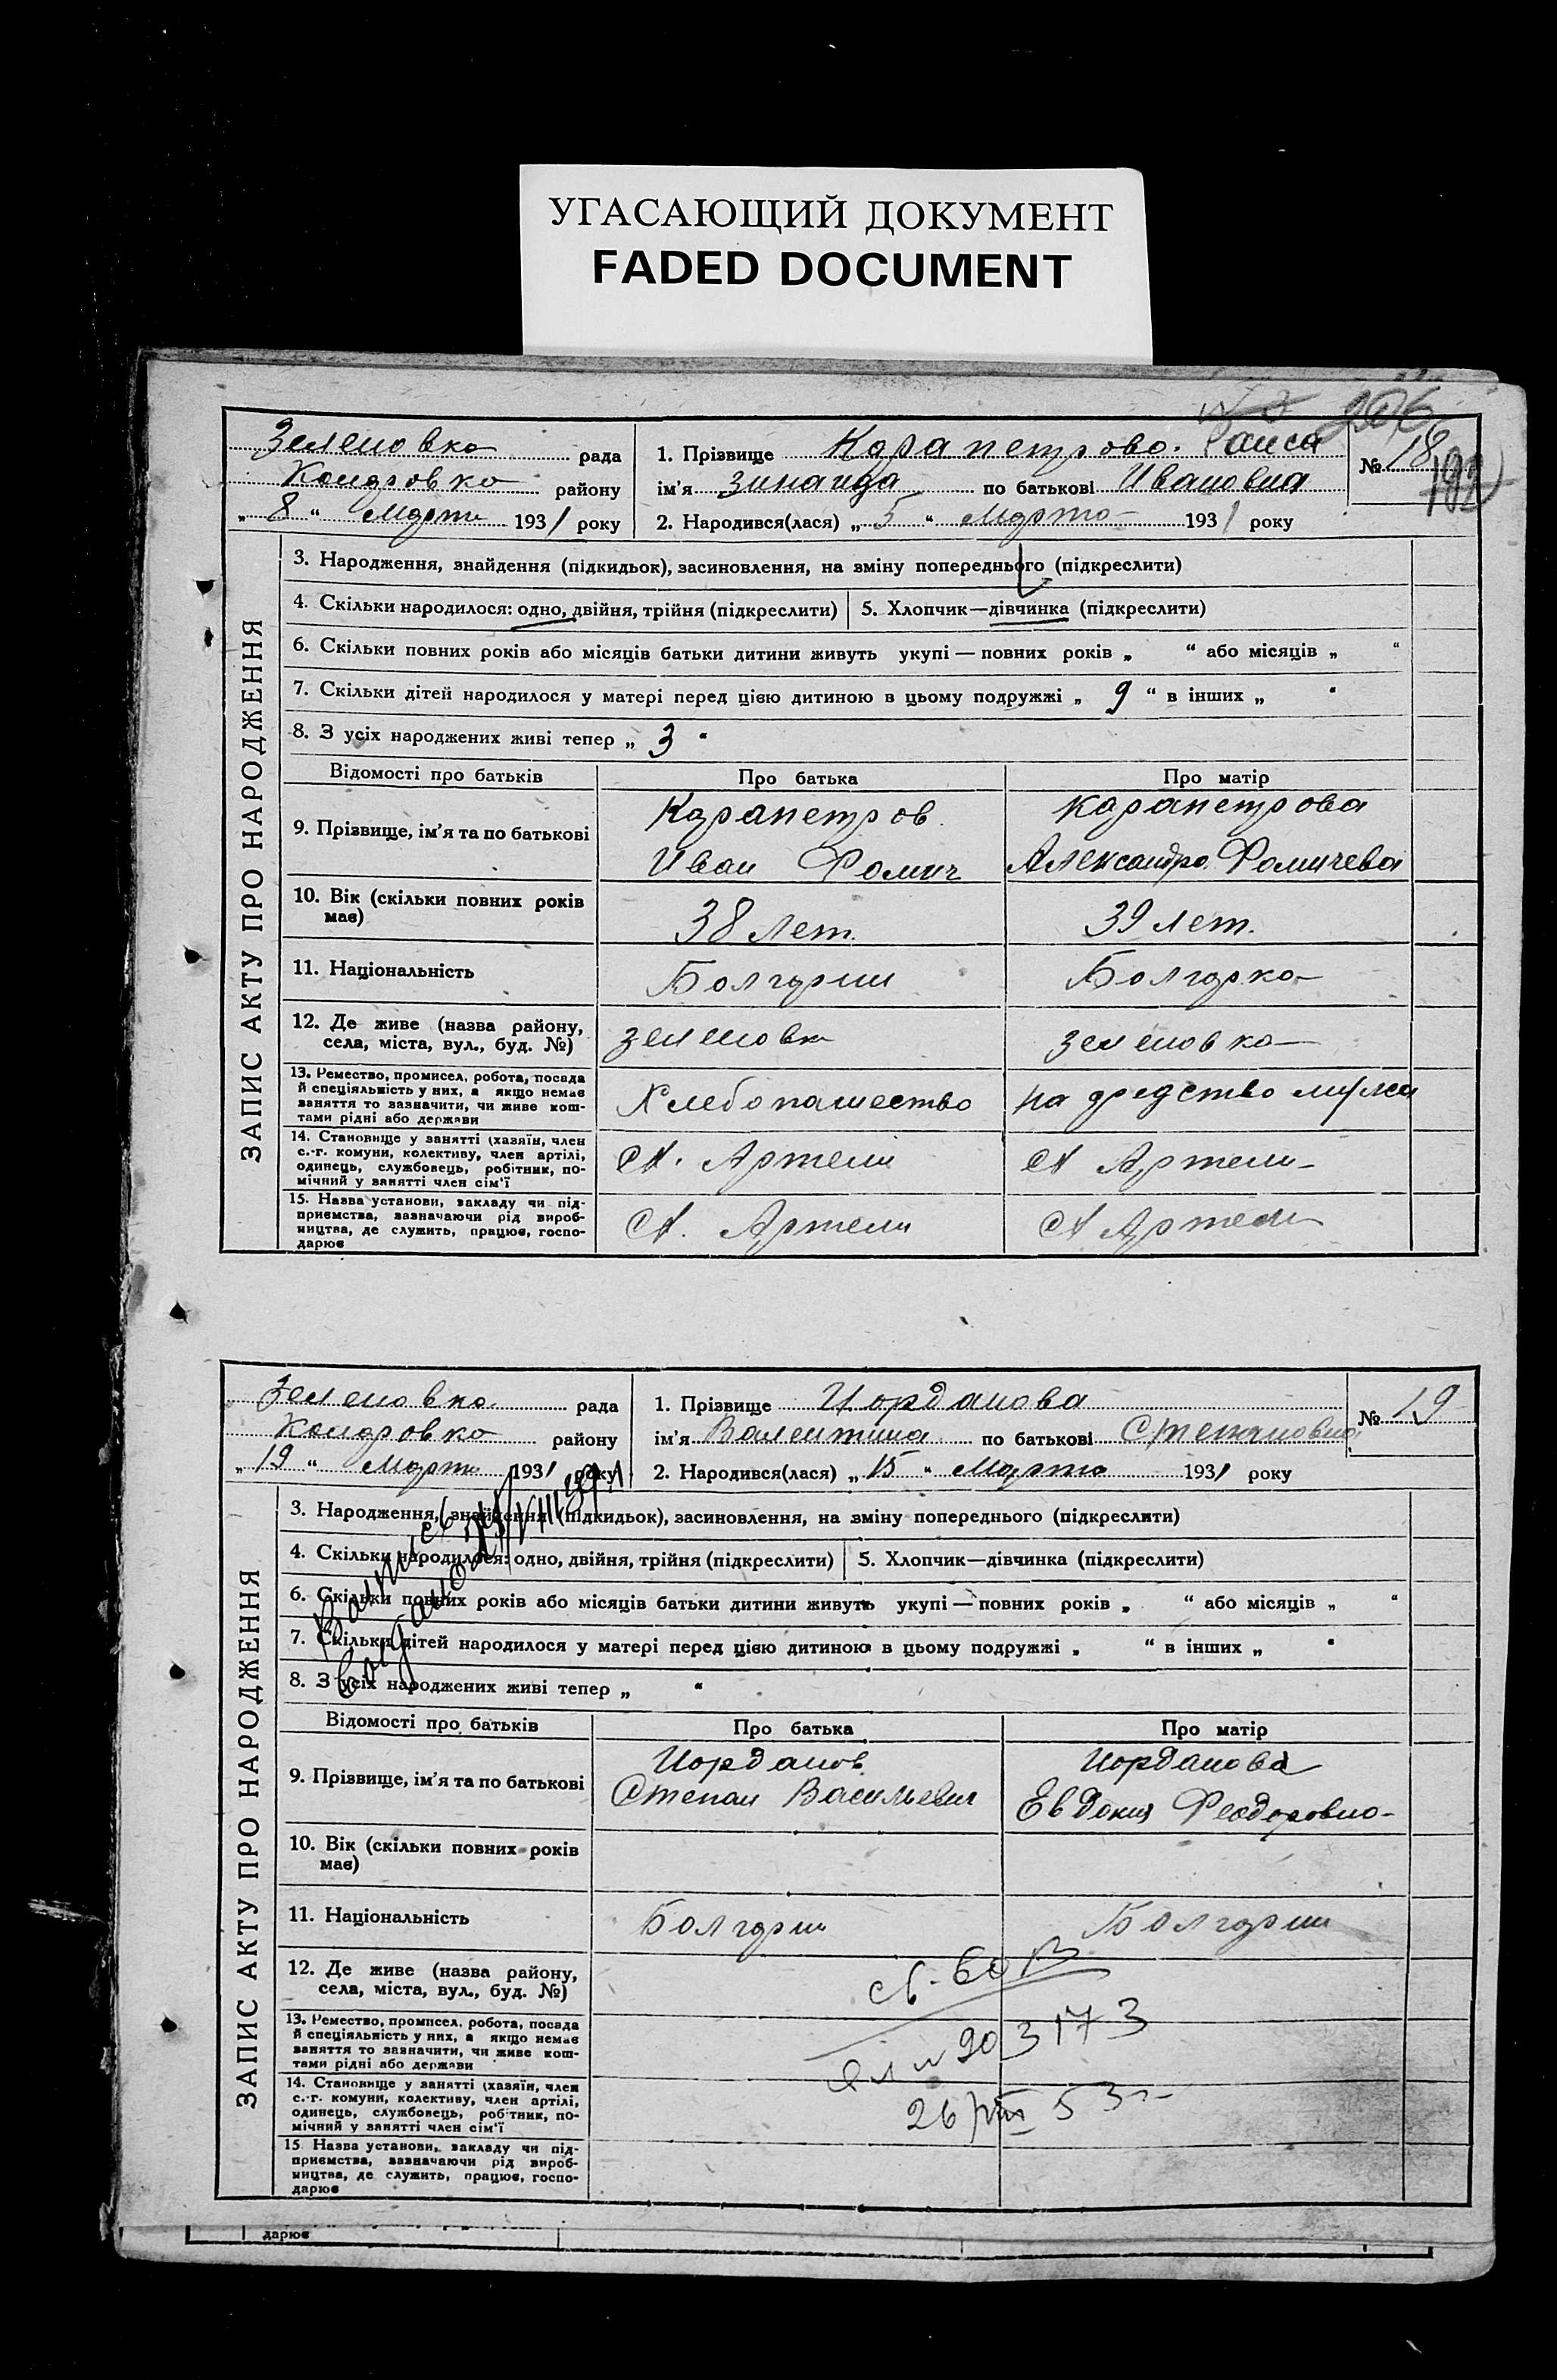 УГАСАЮЩИЙ ДОКУМЕНТ
FADED DOCUMENT
206
182
Зеленовка рада
Комаровка району
„ 8 “ Марта 1931 року
1. Прізвище Карапетрова. Раиса
ім'я Зинаида по батькові Ивановна
2. Народився(лася) „ 5 “ Марта 1931 року
№ 18
ЗАПИС АКТУ ПРО НАРОДЖЕННЯ
3. Народження, знайдення (підкидьок), засиновлення, на зміну попереднього (підкреслити)
4. Скільки народилося: одно, двійня, трійня (підкреслити) 5. Хлопчик—дівчинка (підкреслити)
6. Скільки повних років або місяців батьки дитини живуть укупі — повних років „ “ або місяців „ “
7. Скільки дітей народилося у матері перед цією дитиною в цьому подружжі „ 9 “ в інших „ “
8. З усіх народжених живі тепер „ 3 “
Відомості про батьків Про батька Про матір
9. Прізвище, ім'я та по батькові
Карапетров
Иван Фомич
Карапетрова
Александра Фомичева
10. Вік (скільки повних років
має)
38 лет.
39 лет.
11. Національність
Болгарин
Болгарка
12. Де живе (назва району,
села, міста, вул., буд. №)
Зеленовка
Зеленовка
13. Ремество, промисел, робота, посада
й спеціяльність у них, а якщо немає
заняття то зазначити, чи живе кош-
тами рідні або держави
Хлебопашество
на средство мужа
14. Становище у занятті (хазяїн, член
с.-г. комуни, колективу, член артілі,
одинець, службовець, робітник, по-
мічний у занятті член сім'ї
Артели
Артели
15. Назва установи, закладу чи під-
приємства, зазначаючи рід вироб-
ництва, де служить, працює, госпо-
дарює
Артели
Артели
Зеленовка рада
Комаровка району
„ 19 “ Марта 1931 року
1. Прізвище Иорданова
ім'я Валентина по батькові Степановна
2. Народився(лася) „ 15 “ Марта 1931 року
№ 19
ЗАПИС АКТУ ПРО НАРОДЖЕННЯ
3. Народження, знайдення (підкидьок), засиновлення, на зміну попереднього (підкреслити)
4. Скільки народилося: одно, двійня, трійня (підкреслити) 5. Хлопчик—дівчинка (підкреслити)
6. Скільки повних років або місяців батьки дитини живуть укупі — повних років „ “ або місяців „ “
7. Скільки дітей народилося у матері перед цією дитиною в цьому подружжі „ “ в інших „ “
8. З усіх народжених живі тепер „ “
Відомості про батьків Про батька Про матір
9. Прізвище, ім'я та по батькові
Иорданов
Степан Васильевич
Иорданова
Евдокия Феодоровна
10. Вік (скільки повних років
має)
11. Національність
Болгарин
Болгарин
12. Де живе (назва району,
села, міста, вул., буд. №)
13. Ремество, промисел, робота, посада
й спеціяльність у них, а якщо немає
заняття то зазначити, чи живе кош-
тами рідні або держави
903173
14. Становище у занятті (хазяїн, член
с.-г. комуни, колективу, член артілі,
одинець, службовець, робітник, по-
мічний у занятті член сім'ї
26/VIII 53 г
15. Назва установи, закладу чи під-
приємства, зазначаючи рід вироб-
ництва, де служить, працює, госпо-
дарює
дарює